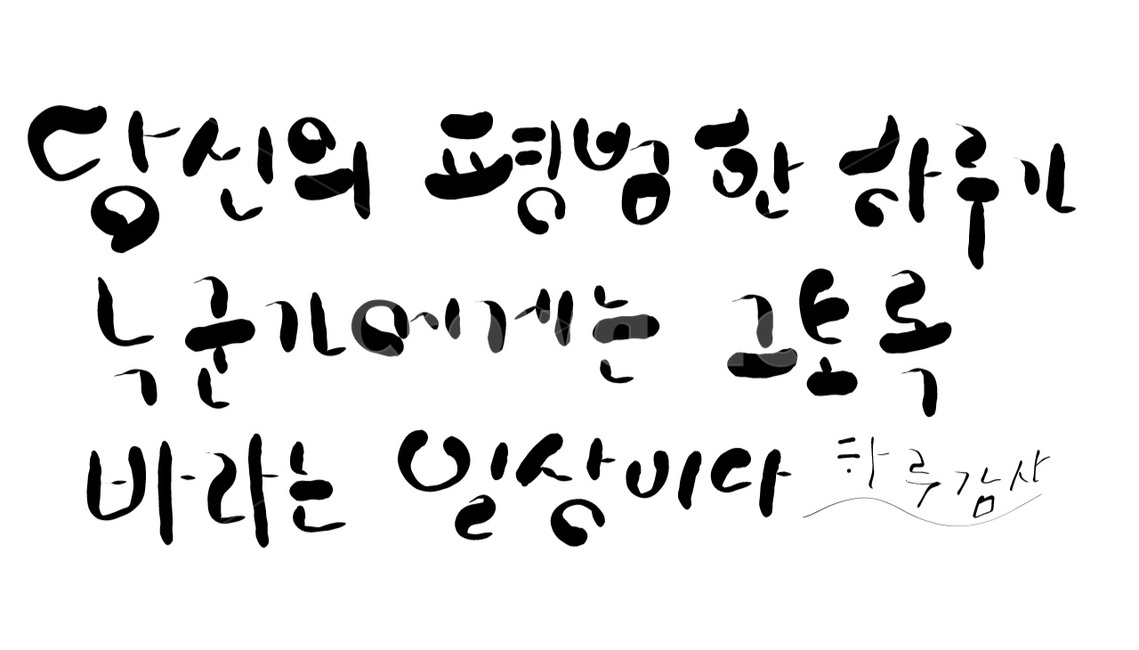 당신의 평범한 하루가
누군가에게는 그토록
바라는 일상이다 하루감사